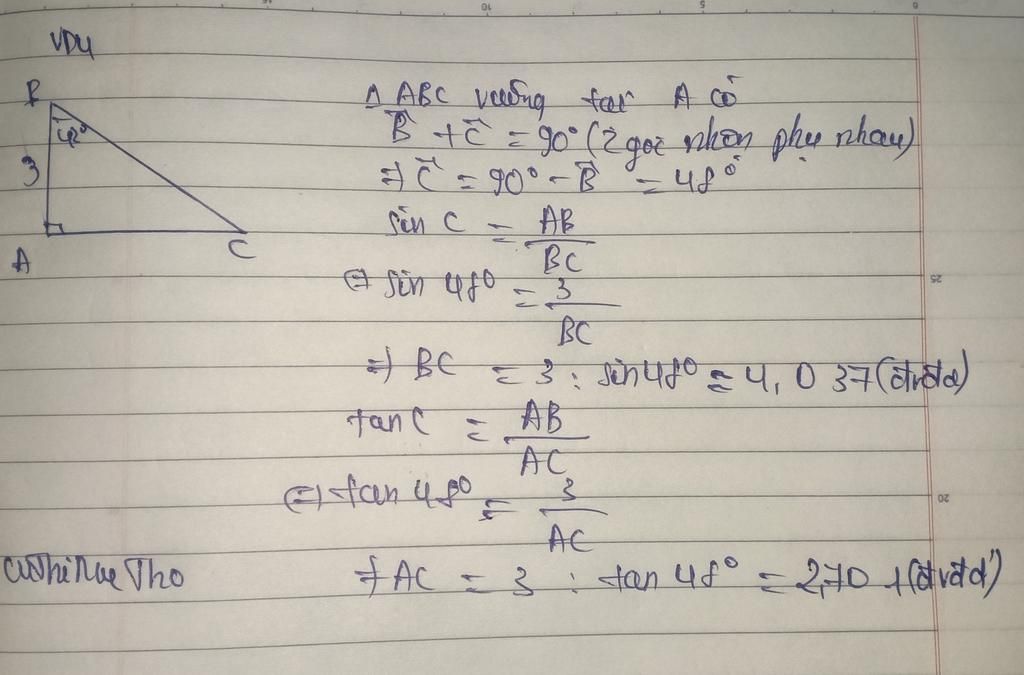 VD4
B
42°
3
A
C
Δ ABC vuông tại A có
B̂ + Ĉ = 90° (2 góc nhọn phụ nhau)
=> Ĉ = 90° - B̂ = 48°
sin C = AB/BC
<=> sin 48° = 3/BC
=> BC = 3 : sin 48° = 4,037 (đvđd)
tan C = AB/AC
<=> tan 48° = 3/AC
=> AC = 3 : tan 48° = 2,701 (đvđd)
Tho
25
20
15
10
5
0